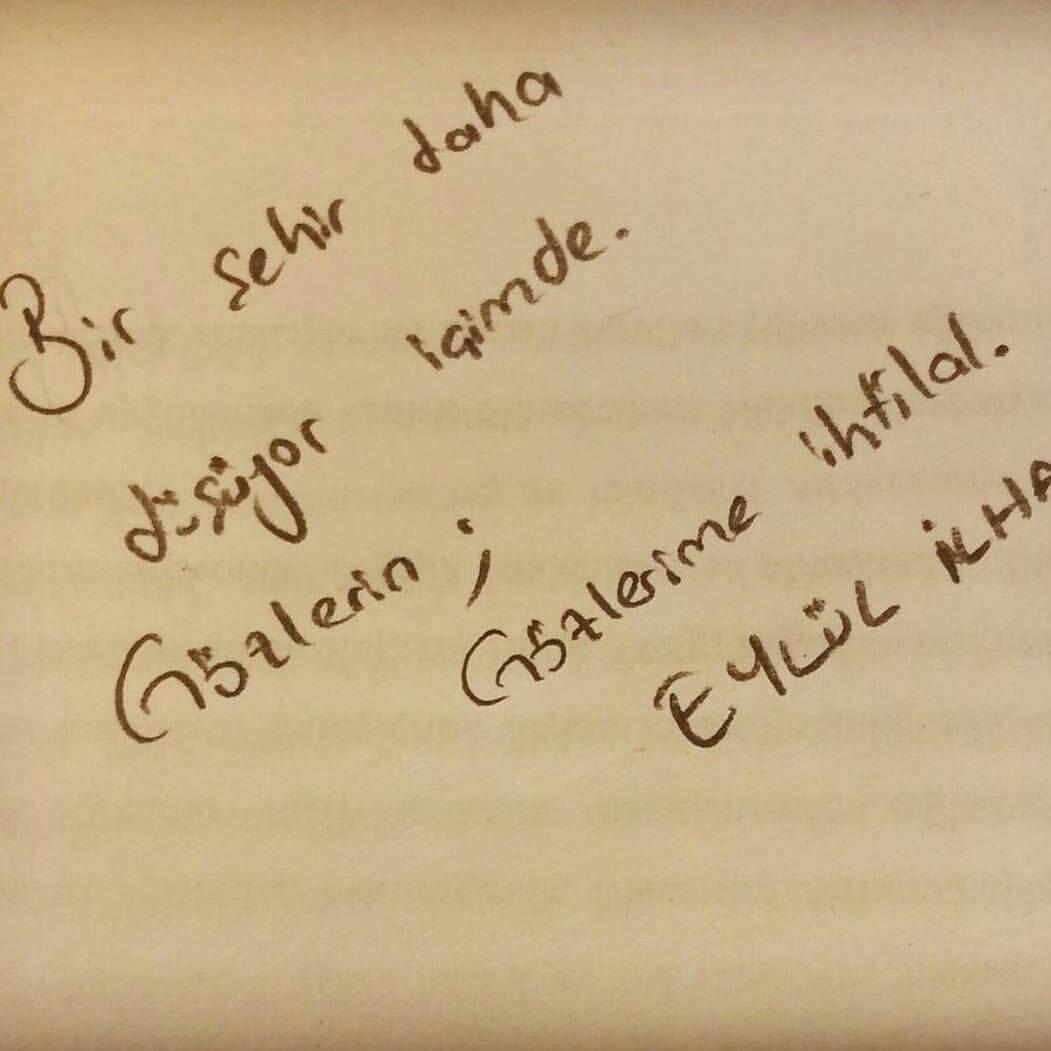 Bir şehir daha
düşüyor içimde.
Gözlerin ; Gözlerime ihtilal.
EYLÜL İLHA